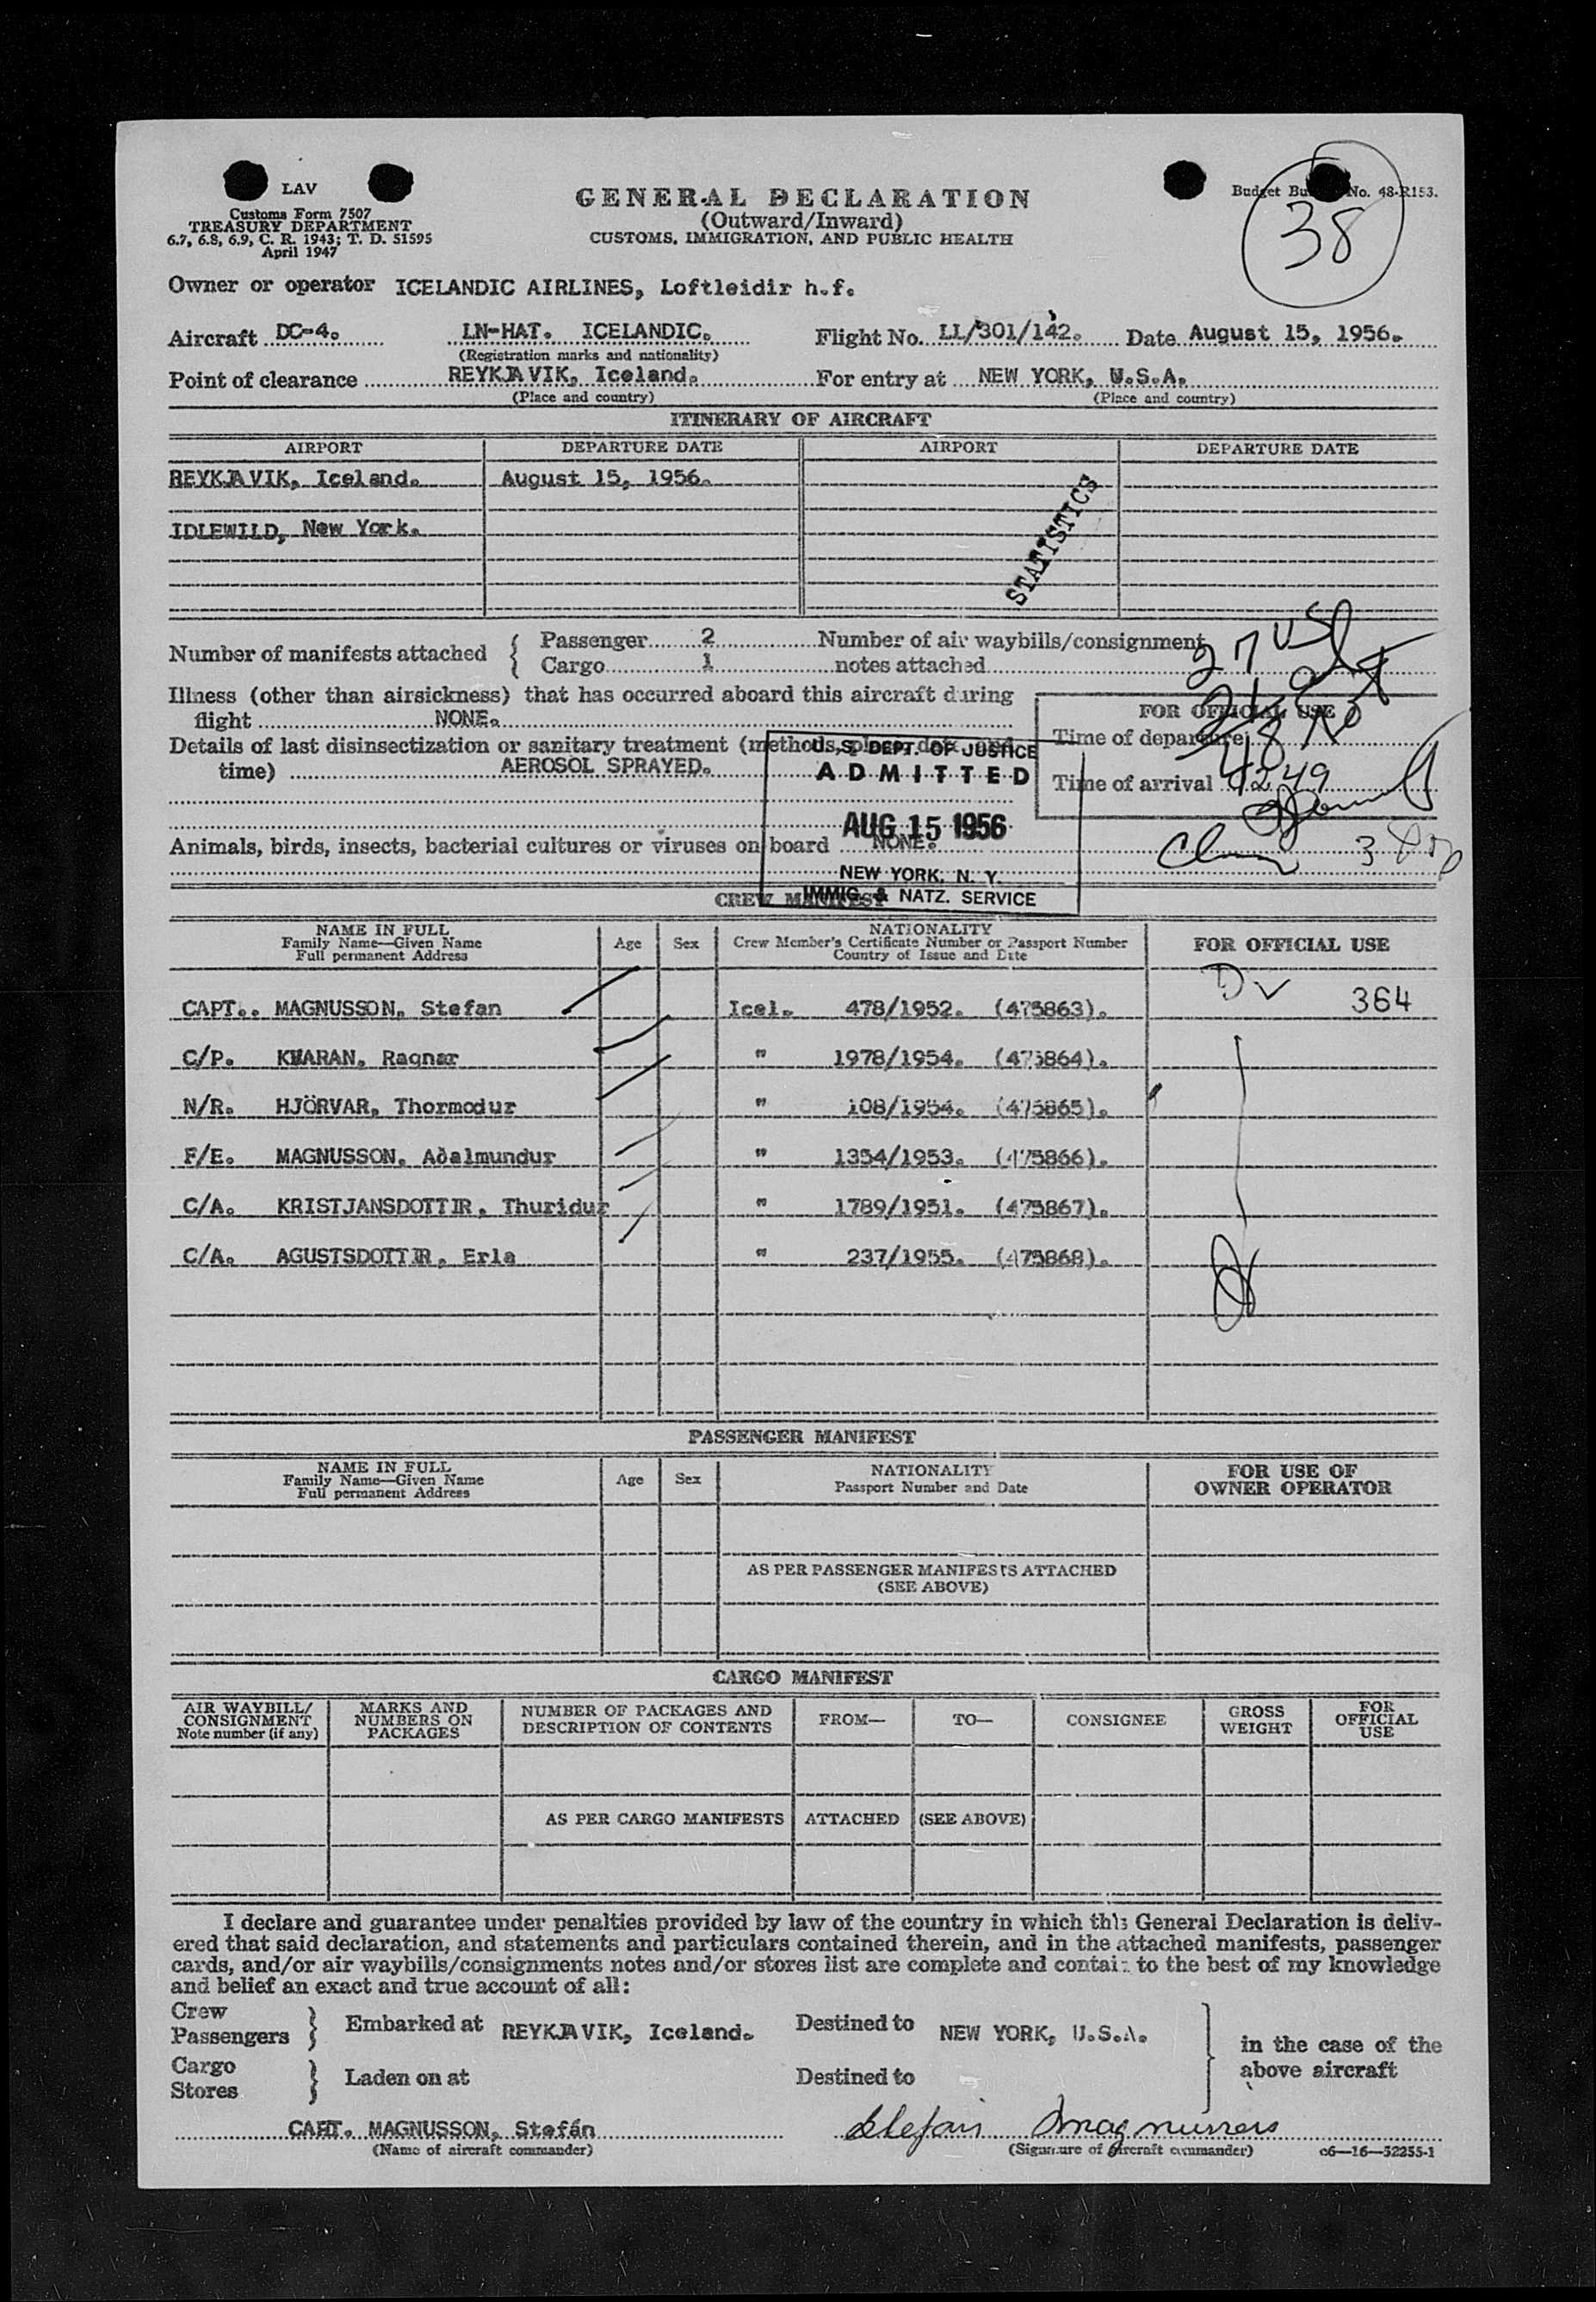 LAV
Customs Form 7507
TREASURY DEPARTMENT
6.7, 6.8, 6.9, C. R. 1943; T. D. 51595
April 1947
GENERAL DECLARATION
(Outward/Inward)
CUSTOMS, IMMIGRATION, AND PUBLIC HEALTH
Budget No. 48-R153.
38
Owner or operator ICELANDIC AIRLINES, Loftleidir h.f.
Aircraft DC-4. LN-HAT. ICELANDIC. Flight No. LL/301/142. Date August 15, 1956.
(Registration marks and nationality)
Point of clearance REYKJAVIK, Iceland. For entry at NEW YORK, U.S.A.
(Place and country) (Place and country)
ITINERARY OF AIRCRAFT
AIRPORT DEPARTURE DATE AIRPORT DEPARTURE DATE
REYKJAVIK, Iceland. August 15, 1956.
IDLEWILD, New York.
STATISTICS
Number of manifests attached { Passenger 2 Number of air waybills/consignment
Cargo 1 notes attached
27 USC
Illness (other than airsickness) that has occurred aboard this aircraft during
flight NONE.
FOR OFFICIAL USE
Time of departure
48
Time of arrival
Details of last disinsectization or sanitary treatment (methods, place, date,
time) AEROSOL SPRAYED.
U. S. DEPT. OF JUSTICE
ADMITTED
AUG 15 1956
NEW YORK, N. Y.
IMMIG. & NATZ. SERVICE
Animals, birds, insects, bacterial cultures or viruses on board NONE.
CREW MANIFEST
NAME IN FULL
Family Name—Given Name
Full permanent Address
Age Sex
NATIONALITY
Crew Member's Certificate Number or Passport Number
Country of Issue and Date
FOR OFFICIAL USE
CAPT.. MAGNUSSON, Stefan Icel. 478/1952. (475863). 364
C/P. KVARAN, Ragnar " 1978/1954. (475864).
N/R. HJÖRVAR, Thormodur " 108/1954. (475865).
F/E. MAGNUSSON, Aðalmundur " 1354/1953. (475866).
C/A. KRISTJANSDOTTIR, Thuridur " 1789/1951. (475867).
C/A. AGUSTSDOTTIR, Erla " 237/1955. (475868).
PASSENGER MANIFEST
NAME IN FULL
Family Name—Given Name
Full permanent Address
Age Sex
NATIONALITY
Passport Number and Date
FOR USE OF
OWNER OPERATOR
AS PER PASSENGER MANIFESTS ATTACHED
(SEE ABOVE)
CARGO MANIFEST
AIR WAYBILL/
CONSIGNMENT
Note number (if any)
MARKS AND
NUMBERS ON
PACKAGES
NUMBER OF PACKAGES AND
DESCRIPTION OF CONTENTS
FROM— TO— CONSIGNEE
GROSS
WEIGHT
FOR
OFFICIAL
USE
AS PER CARGO MANIFESTS ATTACHED (SEE ABOVE)
I declare and guarantee under penalties provided by law of the country in which this General Declaration is deliv-
ered that said declaration, and statements and particulars contained therein, and in the attached manifests, passenger
cards, and/or air waybills/consignments notes and/or stores list are complete and contain to the best of my knowledge
and belief an exact and true account of all:
Crew
Passengers } Embarked at REYKJAVIK, Iceland. Destined to NEW YORK, U.S.A.
Cargo
Stores } Laden on at Destined to
in the case of the
above aircraft
CAPT. MAGNUSSON, Stefán Stefan Magnusson
(Name of aircraft commander) (Signature of aircraft commander) c6—16—52255-1